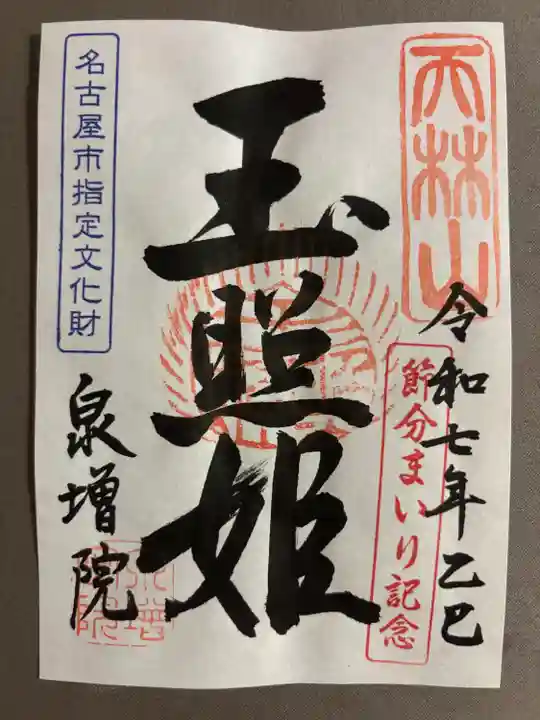 天林山
令和七年乙巳
節分まいり記念
玉照姫
名古屋市指定文化財
泉増院
泉增院